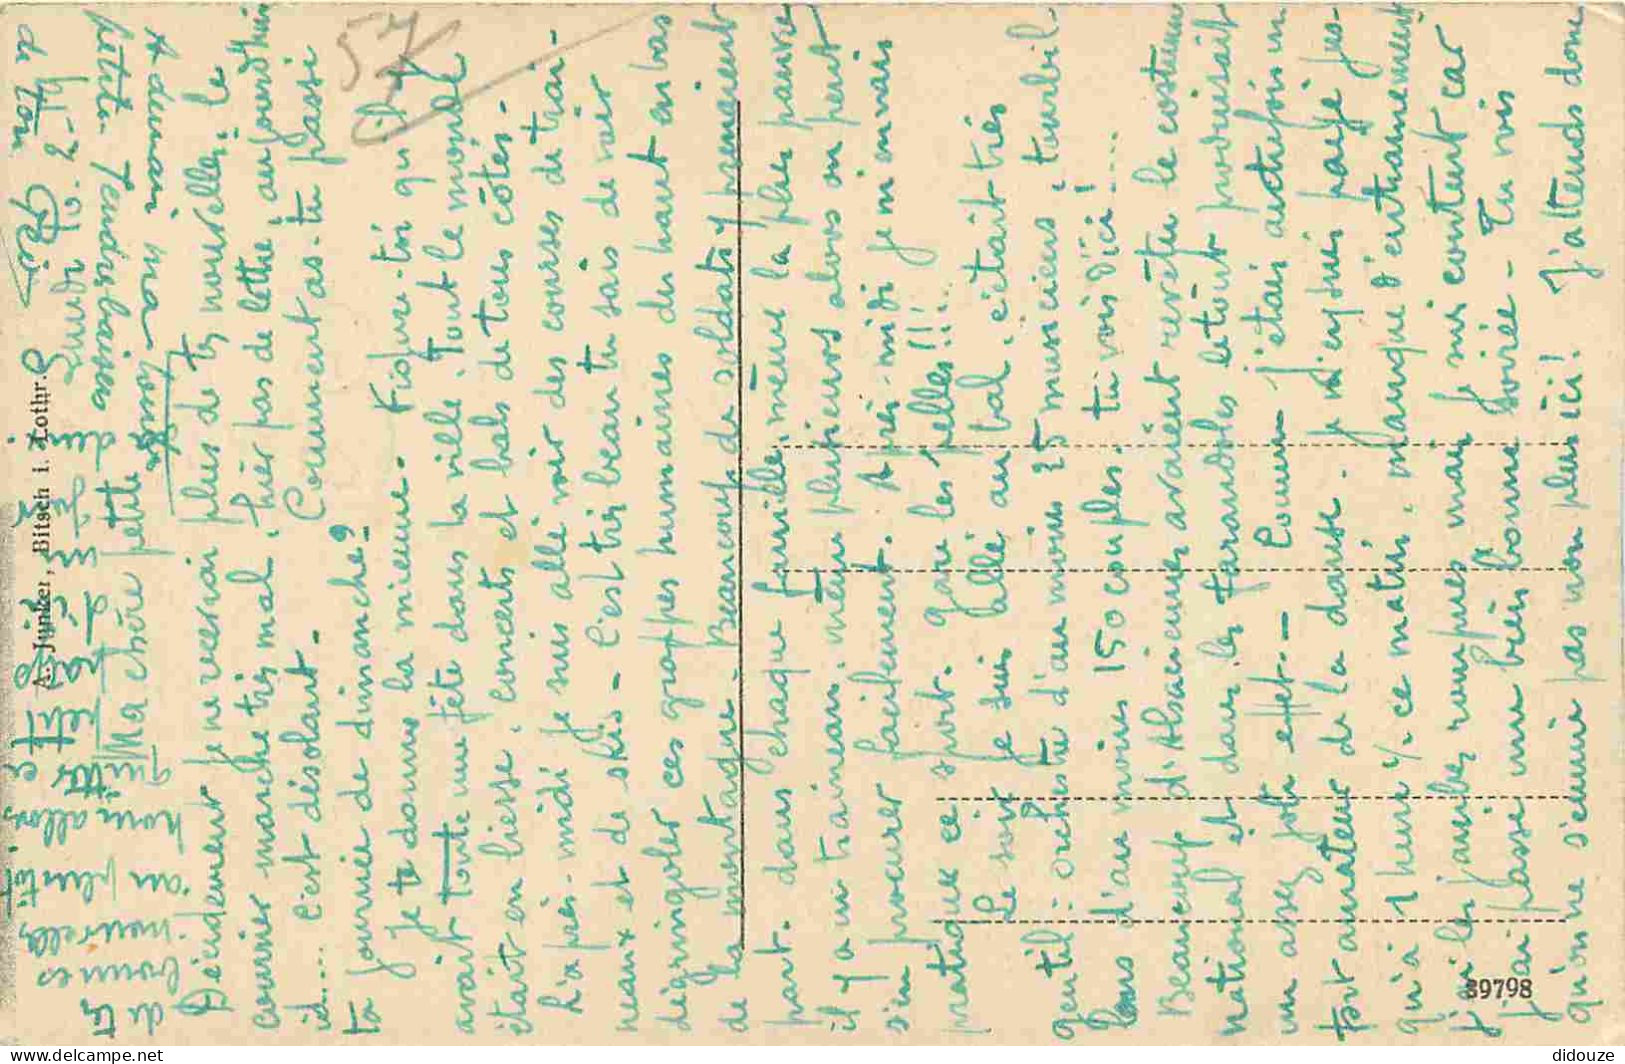 Lundi 2
Ma chère petite
Décidément je ne reçerai plus de tes nouvelles : le
courrier marche très mal, hier pas de lettre, aujourd'hui
id.... C'est désolant -
Comment as-tu passé
ta journée de dimanche ?
Je te donne la mienne. Figure-toi qu'il y
avait toute une fête dans la ville. Tout le monde
était en liesse, concerts et bals de tous côtés -
L'après-midi je suis allé voir des courses de trai-
neaux et de skis - C'est très beau tu sais de voir
dégringoler ces grappes humaines du haut en bas
de la montagne. Beaucoup de soldats y prenaient
part. dans chaque famille, même la plus pauvre
il y a un traineau, même plusieurs alors on peut
s'en procurer facilement. Après-midi je m'en vais
pratiquer ce sport. gare les pelles !!!
Le soir je suis allé au bal, c'était très
gentil : orchestre d'au moins 25 musiciens, tourbil
lons d'au moins 150 couples. tu vois d'ici !....
Beaucoup d'Alsaciennes avaient revêtu le costume
national et dans les farandoles le tout produisait
un assez joli effet - Comme j'étais autrefois un
fort amateur de la danse. je m'en suis payé jus-
qu'à 1 heure ½ ce matin. manque d'entraînement
j'ai les jambes rompues mais je suis content car
j'ai passé une bien bonne soirée - Tu vois
qu'on ne s'ennuie pas non plus ici ! J'attends donc
de tes bonnes
nouvelles
au plutôt
allons
quitte
petit
57
A. Junker, Bitsch i. Lothr.
39798
didouze